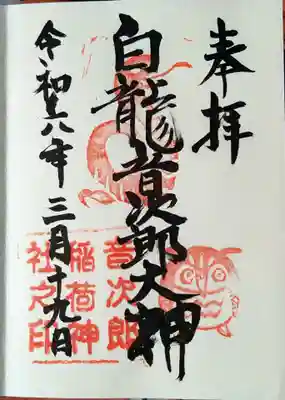 奉拝
白龍音次郎大神
令和六年三月十九日
音次郎
稲荷神
社之印